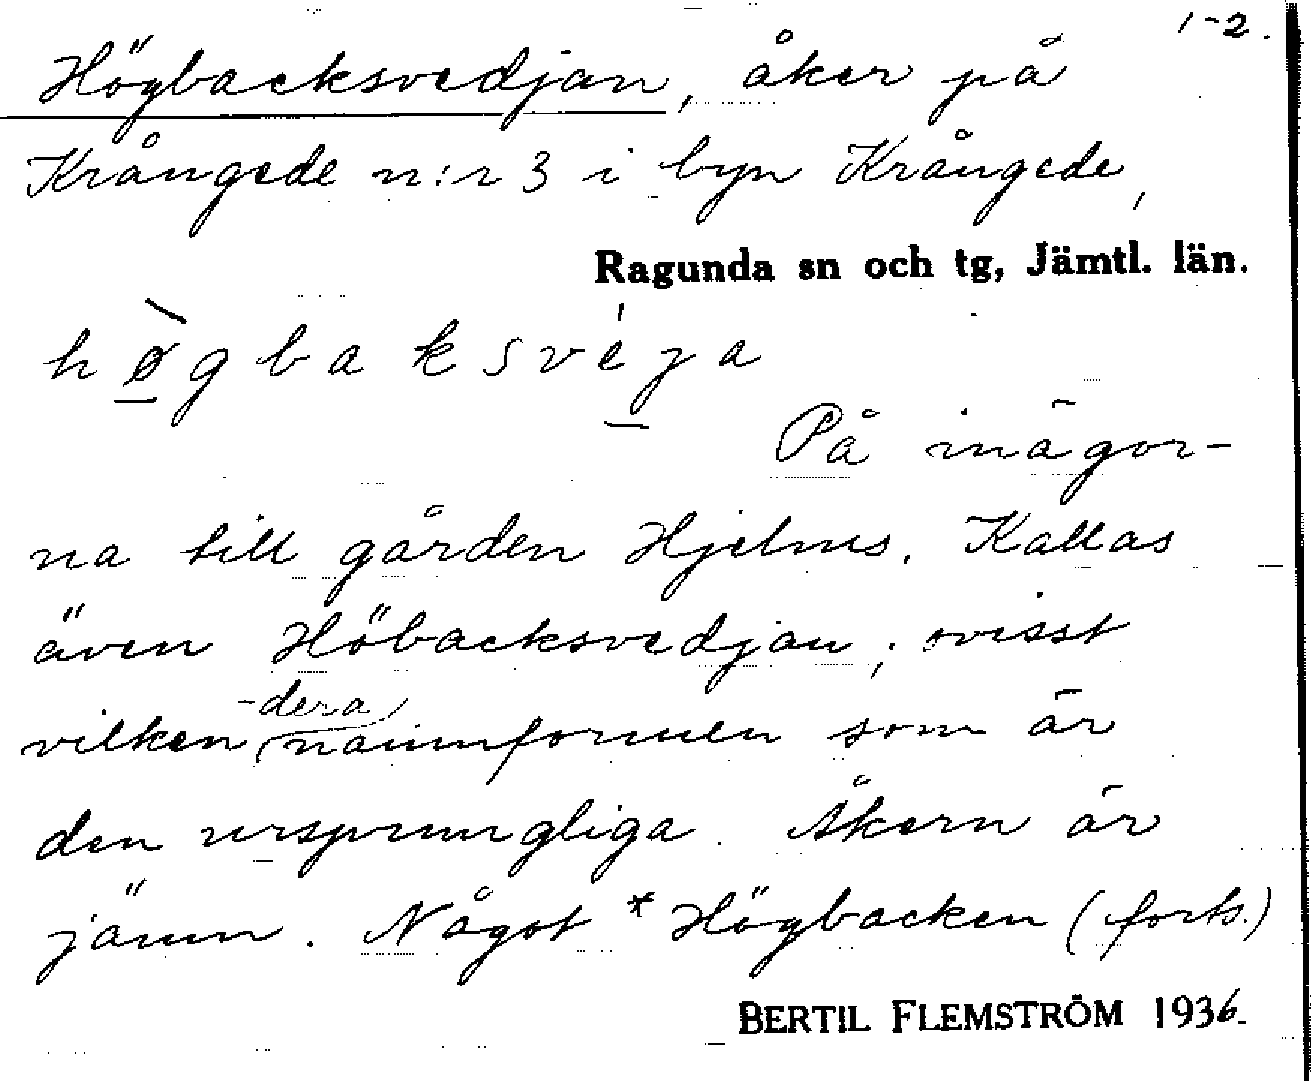 1-2.
Högbacksvedjan, åker på
Krångede n:r 3 i byn Krångede,
Ragunda sn och tg, Jämtl. län.
hø̀gbaksvéja
På inägor-
na till gården Hjelms. Kallas
även Höbacksvedjan; ovisst
vilkendera namnformen som är
den ursprungliga. Åkern är
jämn. Något *Högbacken (forts.)
BERTIL FLEMSTRÖM 1936